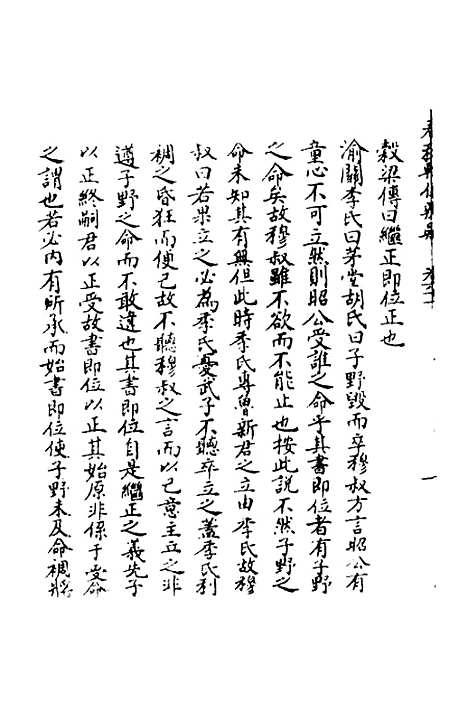 春秋集傳辨異 卷十一
一
穀梁傳曰繼正即位正也
渝關李氏曰茅堂胡氏曰子野毀而卒穆叔方言昭公有
童心不可立然則昭公受誰之命乎其書即位者有子野
之命矣故穆叔雖不欲而不能止也按此說不然子野之
命未知其有無但此時季氏專魯新君之立由季氏故穆
叔曰若果立之必為季氏憂武子不聽卒立之蓋季氏利
裯之昏狂而便己故不聽穆叔之言而以己意主立之非
遵子野之命而不敢違也其書即位自是繼正之義先子
以正終嗣君以正受故書即位以正其始原非係于受命
之謂也若必內有所承而始書即位使子野未及命裯將